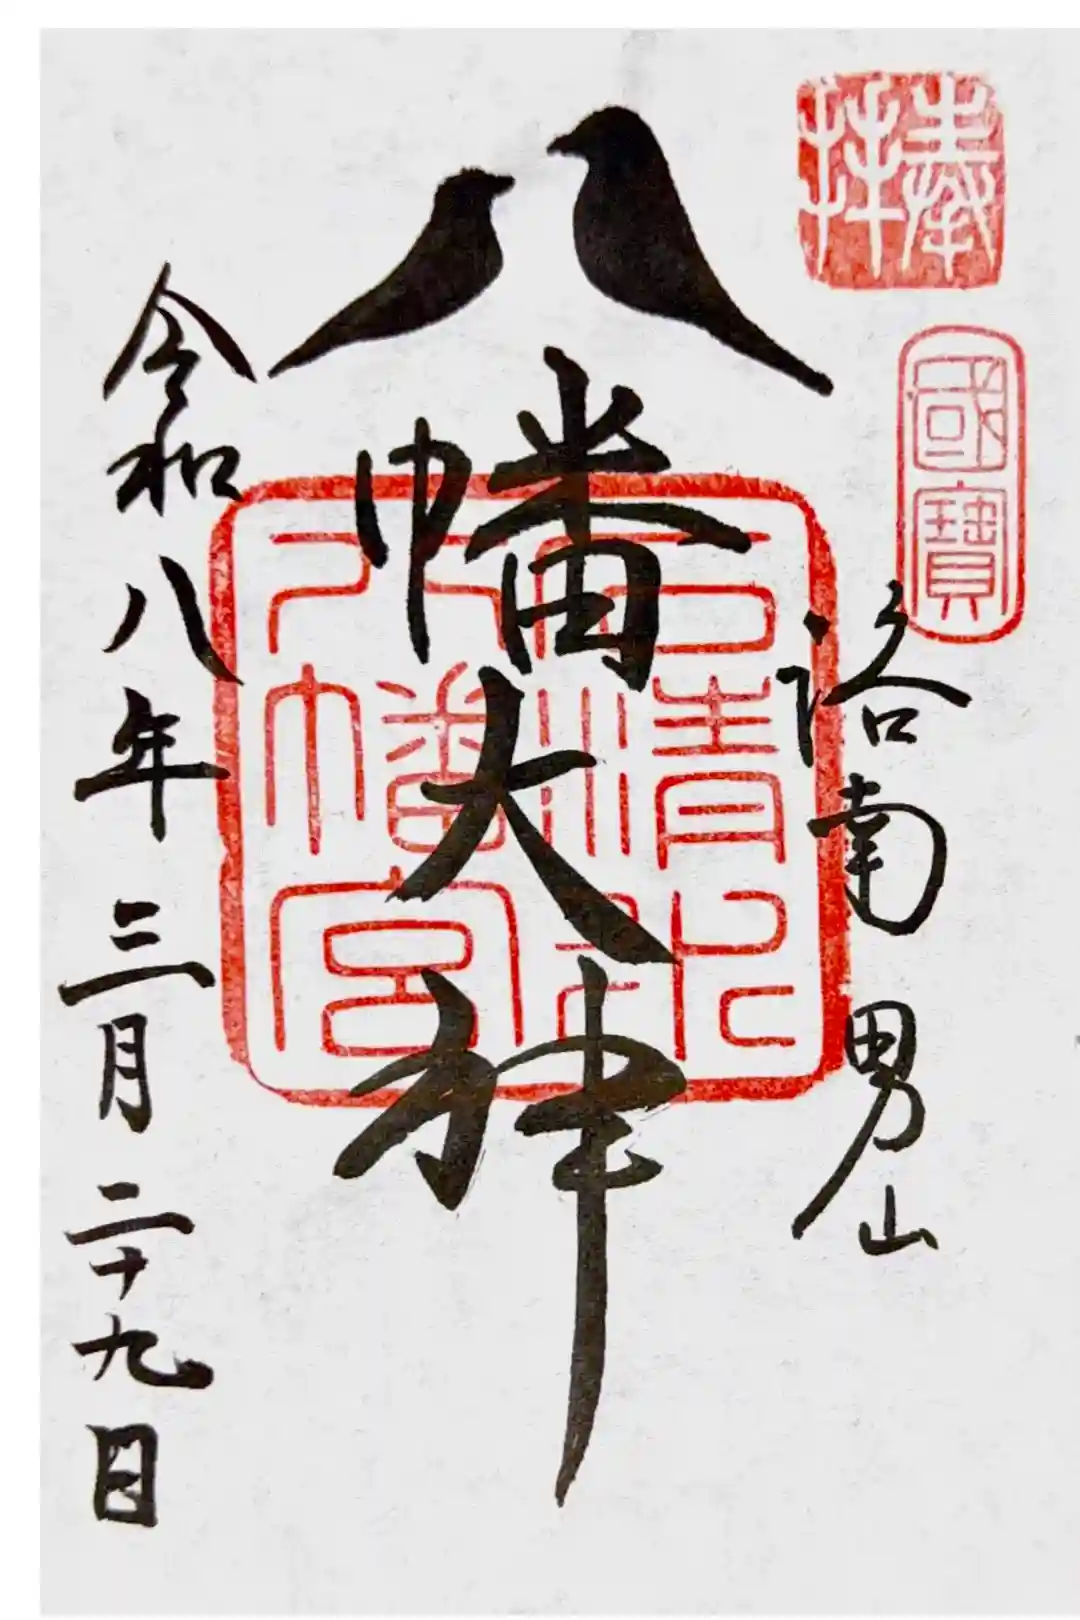 奉拝
國寶
洛南 男山
八幡大神
石清水
八幡宮
令和八年三月二十九日